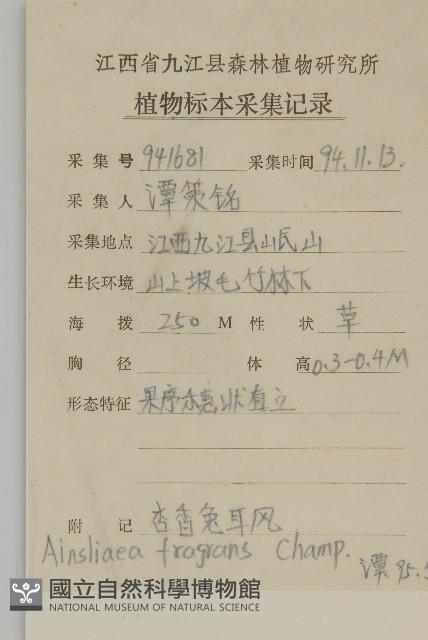 江西省九江县森林植物研究所
植物标本采集记录
采集号 941681 采集时间 94.11.13.
采集人 谭策铭
采集地点 江西九江县岷山
生长环境 山上坡毛竹林下
海拨 250 M 性状 草
胸径 体高 0.3-0.4M
形态特征 果序穗状直立
附记 杏香兔耳风
Ainsliaea fragrans Champ.
潭 95.
國立自然科學博物館
NATIONAL MUSEUM OF NATURAL SCIENCE